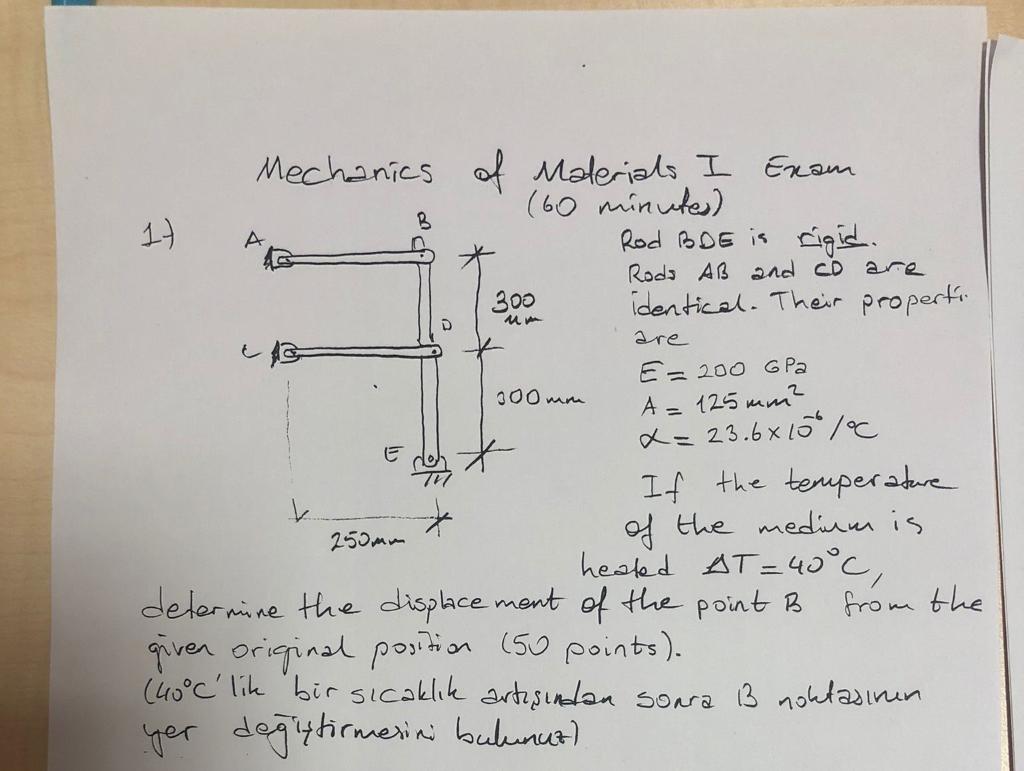 Mechanics of Materials I Exam
(60 minutes)
1)
A
B
C
D
E
300
mm
300 mm
250mm
Rod BDE is rigid.
Rods AB and CD are
identical. Their properti.
are
E = 200 GPa
A = 125 mm²
α = 23.6 x 10⁻⁶ /°C
If the temperature
of the medium is
heated ΔT = 40°C,
determine the displacement of the point B from the
given original position (50 points).
(40°C'lik bir sıcaklık artışından sonra B noktasının
yer değiştirmesini bulunuz)